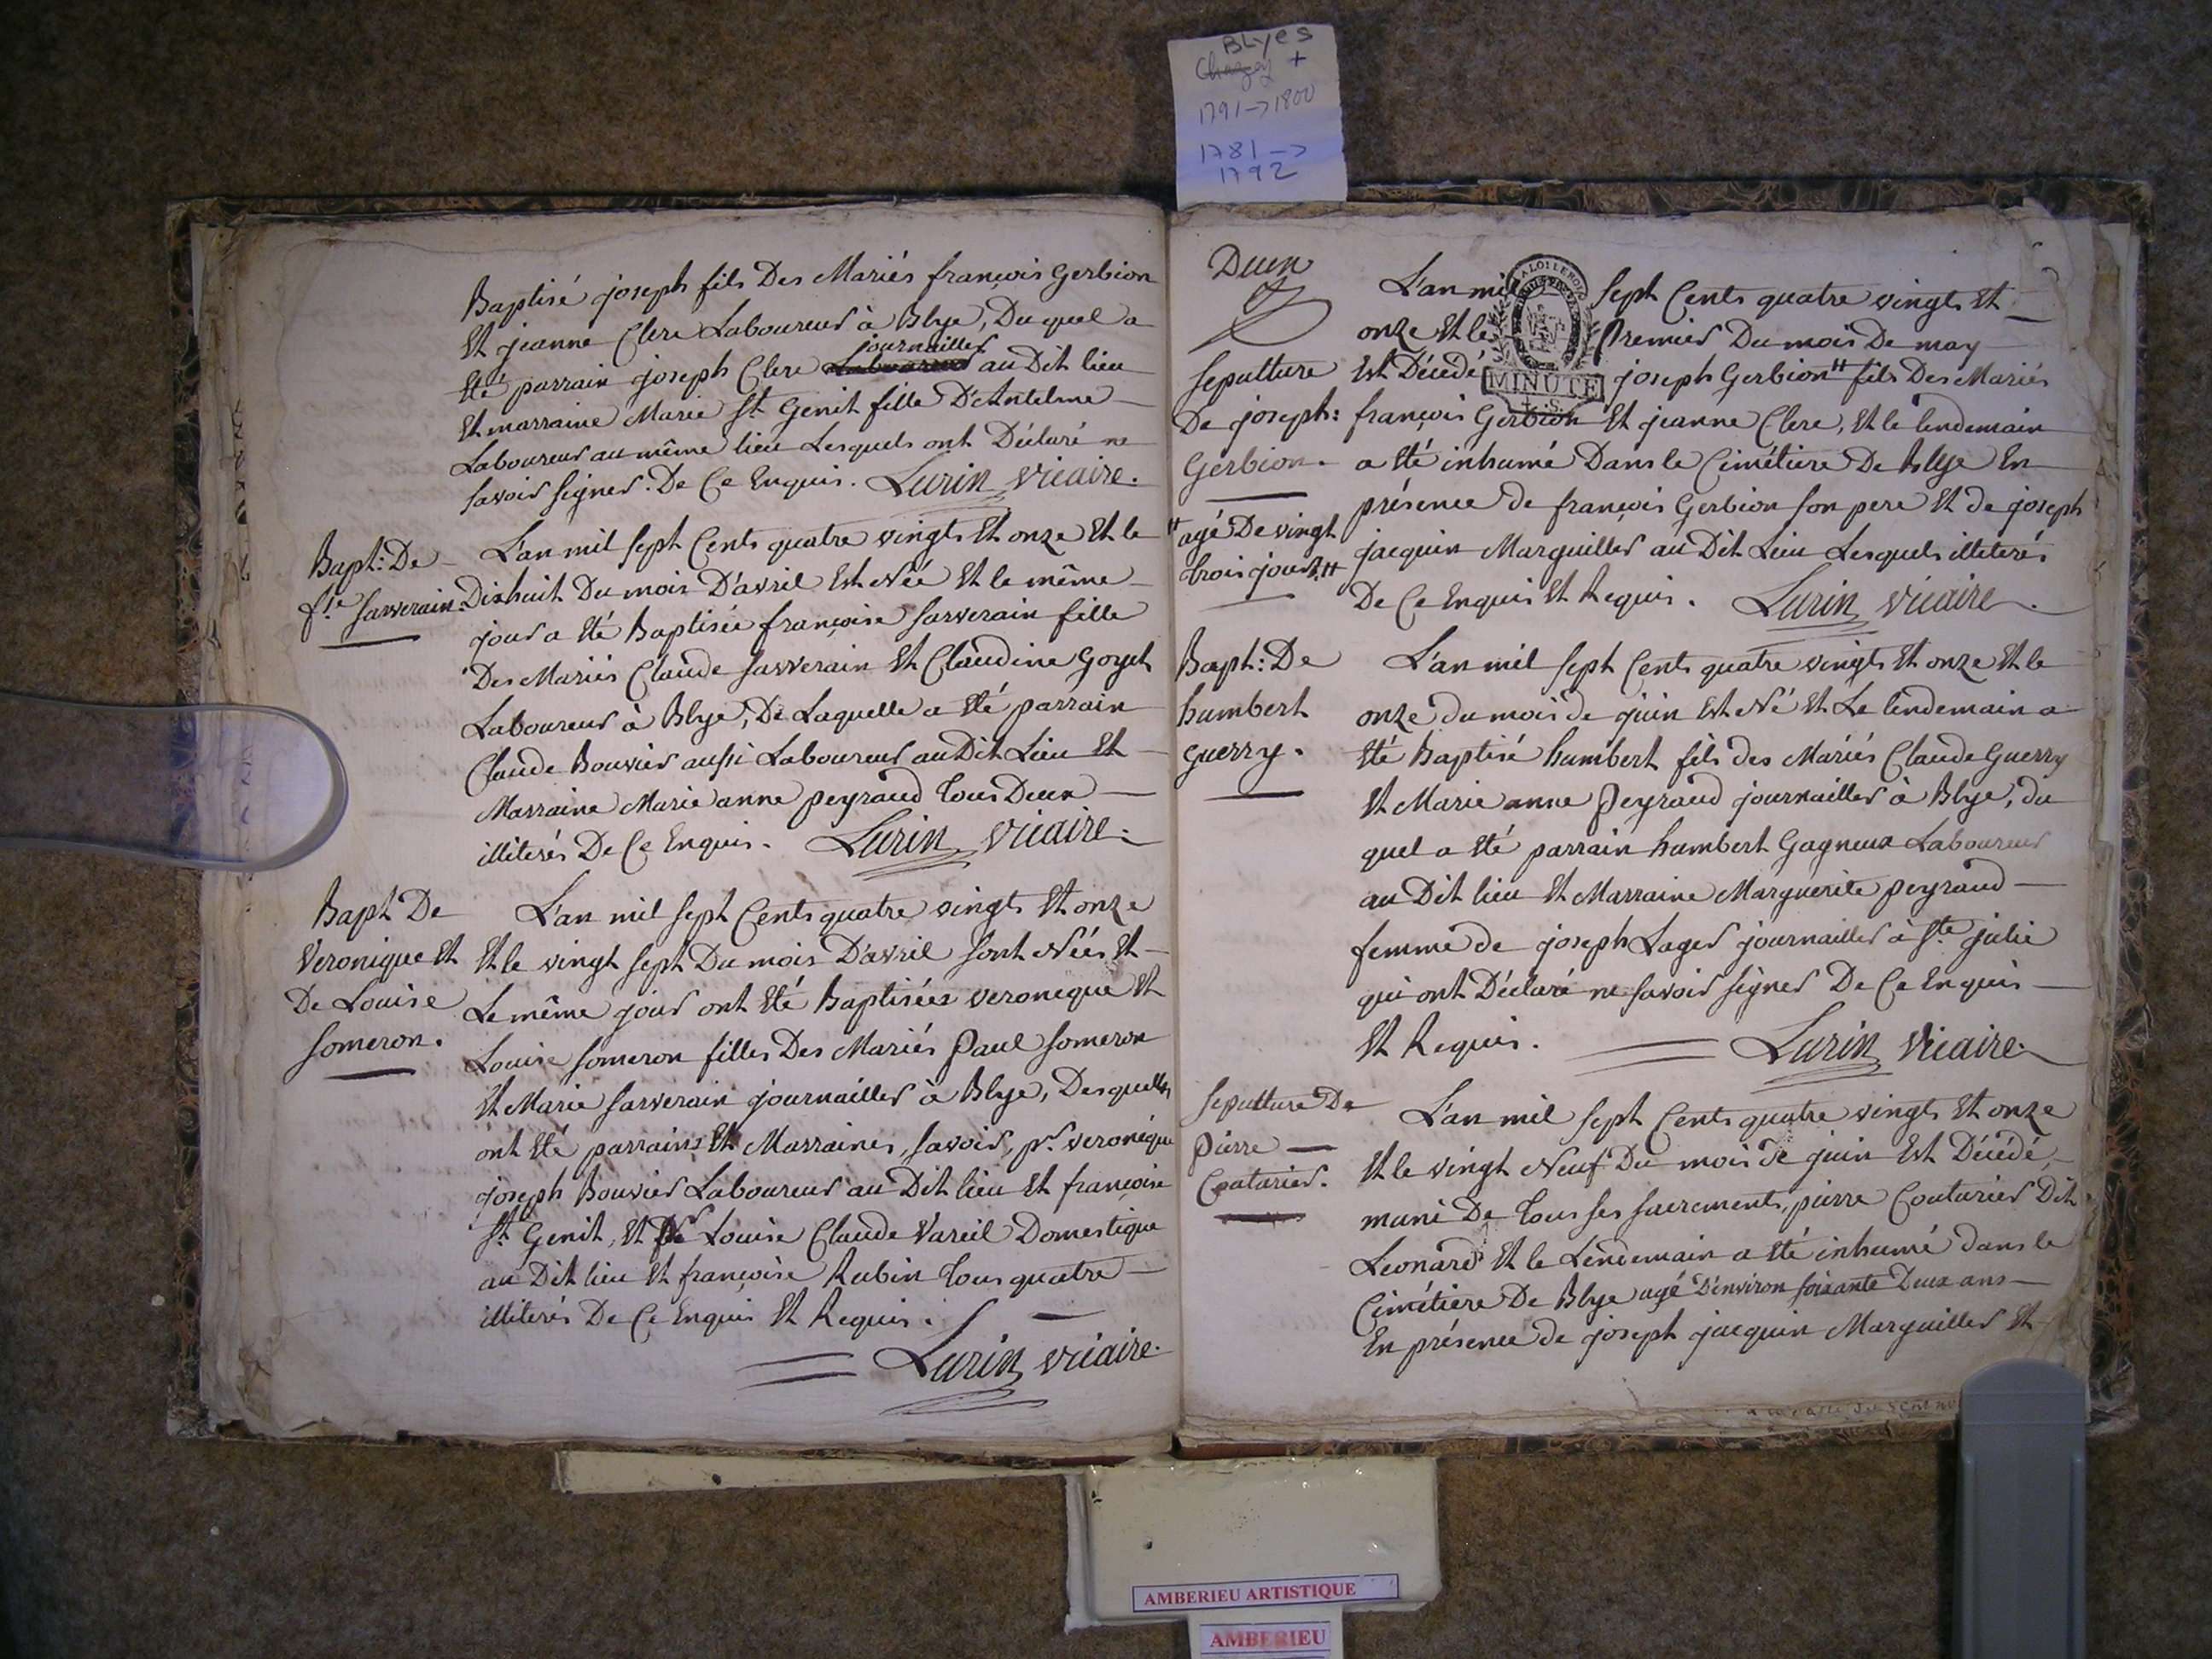 BLyes
Chazey +
1791->1800
1781->
1792
Baptisé joseph fils Des Mariés françois Gerbion
Et jeanne Clere Laboureur à Blye, Du quel a
journailler
Eté parrain joseph Clere Laboureur au Dit lieu
Et marraine Marie St Genit fille D'Antelme
Laboureur au même lieu Lesquels ont Déclaré ne
savoir signer. De Ce Enquis. Lurin vicaire.
Bapt: De
fse sarverain.
L'an mil sept Cents quatre vingts Et onze Et le
Dixhuit Du mois D'avril Est Née Et le même
jour a Eté Baptisée françoise sarverain fille
Des Mariés Claude sarverain Et Claudine Goyet
Laboureur à Blye, De Laquelle a Eté parrain
Claude Bouvier aussi Laboureur au Dit Lieu Et
Marraine Marie anne peyraud Tous Deux
illiterés De Ce Enquis. Lurin vicaire.
Bapt De
Veronique Et
De Louise
someron.
L'an mil sept Cents quatre vingts Et onze
Et le vingt sept Du mois D'avril sont Nées Et
Le même jour ont Eté Baptisées veronique Et
Louise someron filles Des Mariés Paul someron
Et Marie sarverain journailler à Blye, Desquelles
ont Eté parrains Et Marraines, savoir, pr. veronique
joseph Bouvier Laboureur au Dit lieu Et françoise
St Genit, Et pr Louise Claude Vareil Domestique
au Dit lieu Et françoise Rubin Tous quatre
illiterés De Ce Enquis Et Requis.
Lurin vicaire.
Deux
sepulture
De joseph:
Gerbion.
# agé De vingt
trois jours. #
MINUTE
L'an mil sept Cents quatre vingts Et
onze Et le Premier Du mois De may
Est Décédé joseph Gerbion # fils Des Mariés
françois Gerbion Et jeanne Clere, Et le lendemain
a Eté inhumé Dans le Cimétiere De Blye En
présence de françois Gerbion son pere Et de joseph
jacquin Marguiller au Dit Lieu Lesquels illiterés
De Ce Enquis Et Requis. Lurin vicaire.
Bapt: De
humbert
guerry.
L'an mil sept Cents quatre vingts Et onze Et le
onze du mois de juin Est Né Et Le lendemain a
Eté Baptisé humbert fils des Mariés Claude Guerry
Et Marie anne Peyraud journailler à Blye, du
quel a Eté parrain humbert Gagneux Laboureur
au Dit lieu Et Marraine Marguerite peyraud
femme de joseph Lager journailler à Ste julie
qui ont Déclaré ne savoir signer De Ce Enquis
Et Requis. Lurin vicaire.
sepulture De
Pierre
Couturier.
L'an mil sept Cents quatre vingts Et onze
Et le vingt Neuf Du mois de juin Est Décédé,
muni De Tous ses sacrements, pierre Couturier Dit
Leonard Et le Lendemain a Eté inhumé dans le
Cimétiere De Blye agé D'environ soixante Deux ans
En présence de joseph jacquin Marguiller Et
AMBERIEU ARTISTIQUE
AMBERIEU